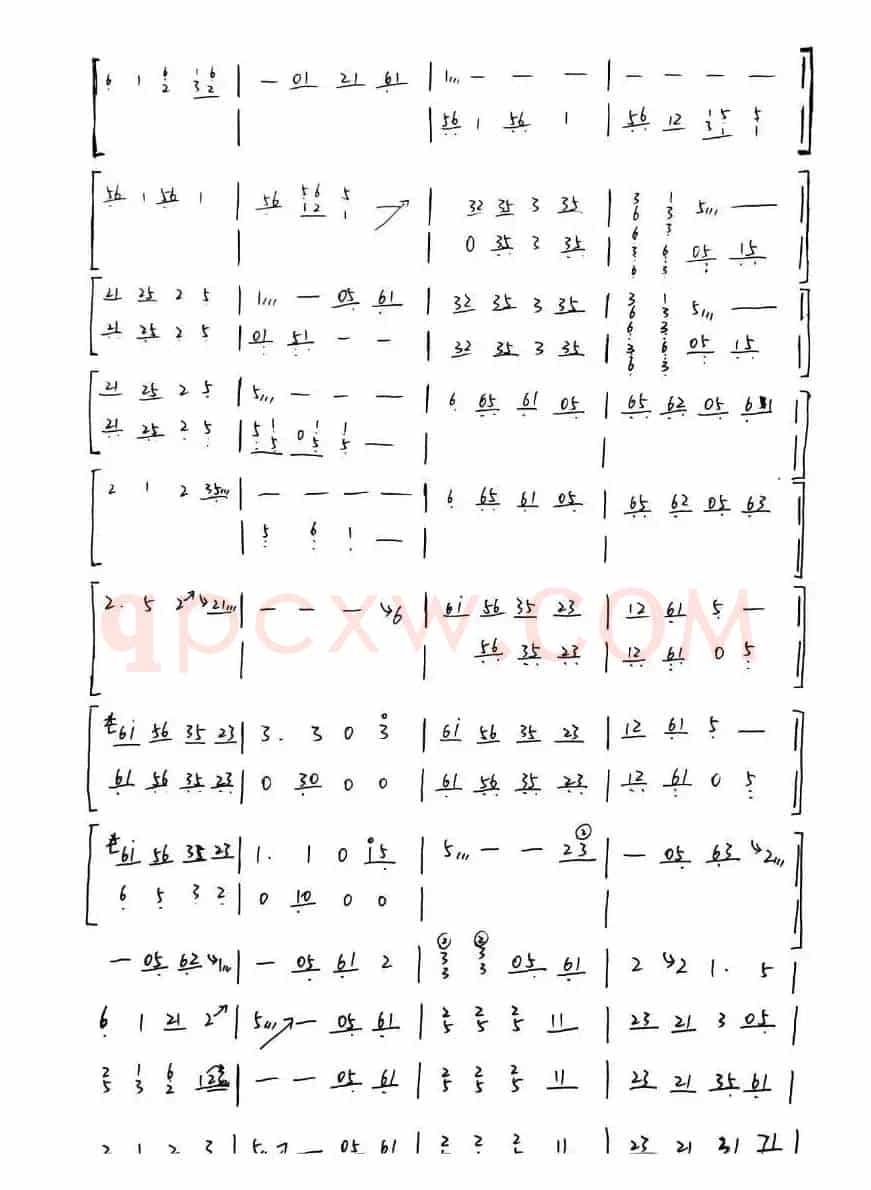 6 1 6/2 1/3 6/2 | — 01 21 61 | 1,,, — — — | — — — — |
56 1 56 1 | 56 12 1/3 5/1 5/1 |
56 1 56 1 | 56 5/1 6/2 5/1 | 32 35 3 35 | 3/6 1/3 5,,, — |
0 35 3 35 | 6/3/6 3/6/3 05 15 |
21 25 2 5 | 1,,, — 05 61 | 32 35 3 35 | 3/6 1/3 5,,, — |
21 25 2 5 | 01 51 — — | 32 35 3 35 | 6/3/6 3/6/3 05 15 |
21 25 2 5 | 5,,, — — — | 6 65 61 05 | 65 62 05 |
21 25 2 5 | 5 1/5 0 1/5 1/5 — |
2 1 2 35,,, | — — — — | 6 65 61 05 | 65 62 05 63 |
5 6 1 — |
2. 5 2 21,,, | — — — 6 | 6i 56 35 23 | 12 61 5 — |
56 35 23 | 12 61 0 5 |
qpcxw.COM
6i 56 35 23 | 3. 3 0 3 | 6i 56 35 23 | 12 61 5 — |
61 56 35 23 | 0 30 0 0 | 61 56 35 23 | 12 61 0 5 |
6i 56 35 23 | 1. 1 0 i5 | 5,,, — — 23 | — 05 63 2,,, |
6 5 3 2 | 0 10 0 0 |
— 05 62 1,,, | — 05 61 2 | 3/3 3/3 05 61 | 2 2 1. 5 |
6 1 21 2 | 5,,, — 05 61 | 2/5 2/5 2/5 11 | 23 21 3 05 |
2/5 1/3 6/2 123 | — — 05 61 | 2/5 2/5 2/5 11 | 23 21 35 61 |
2 1 2 3 | 5,, — 05 61 | 2 2 2 11 | 23 21 31 |